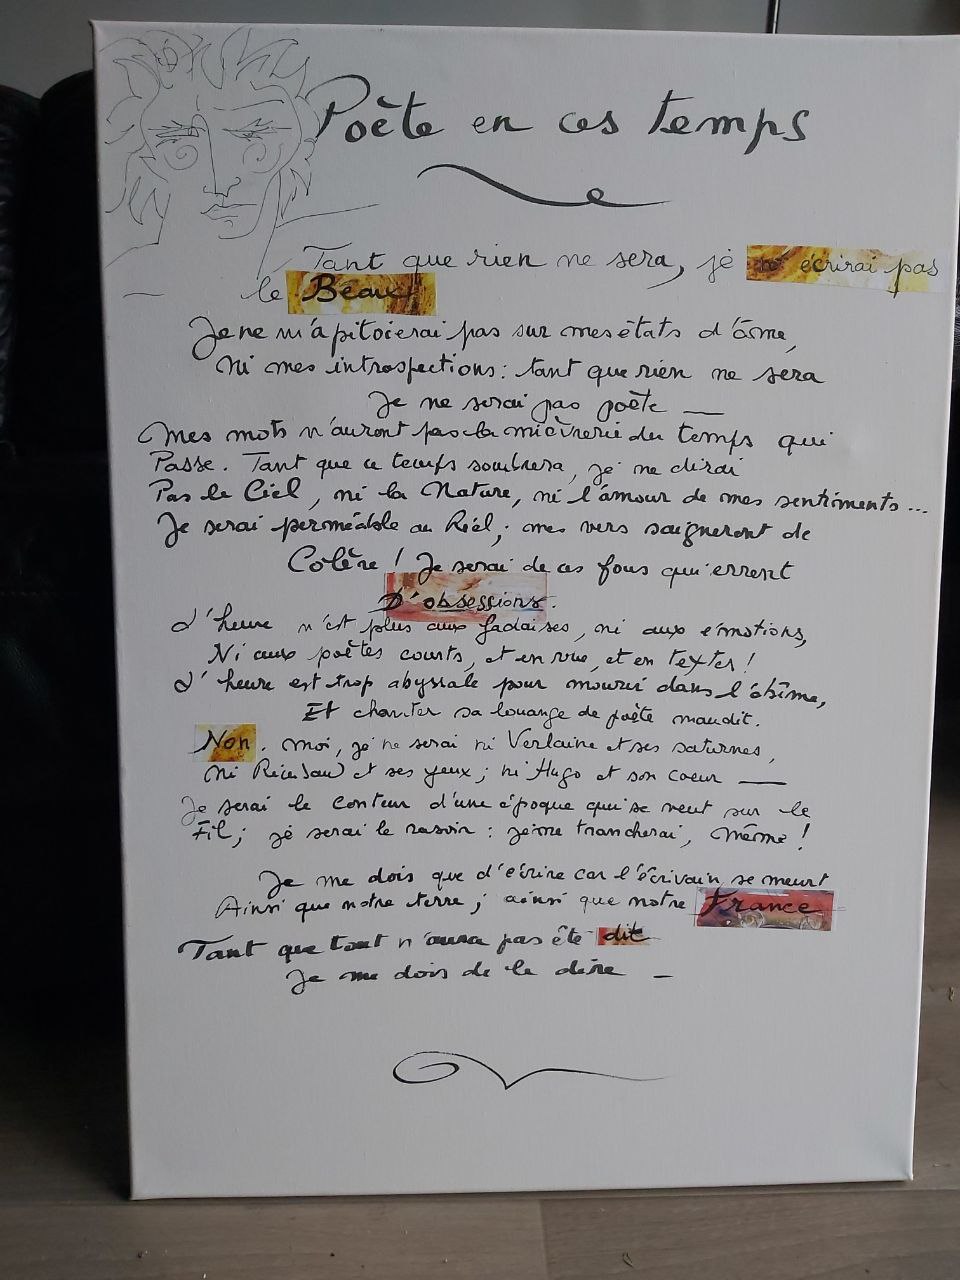 Poète en ces temps
Tant que rien ne sera, je n'écrirai pas
le Beau!
Je ne m'apitoierai pas sur mes états d'âme,
Ni mes introspections : tant que rien ne sera
Je ne serai pas poète —
Mes mots n'auront pas la mièvrerie du temps qui
Passe. Tant que ce temps sombrera, je ne dirai
Pas le Ciel, ni la Nature, ni l'amour de mes sentiments...
Je serai perméable au Réel ; mes vers saigneront de
Colère ! Je serai de ces fous qui errent
D'obsessions.
L'heure n'est plus aux fadaises, ni aux émotions,
Ni aux poètes courts, et en vue, et en textes !
L'heure est trop abyssale pour mourir dans l'abîme,
Et chanter sa louange de poète maudit.
Non. Moi, je ne serai ni Verlaine et ses saturnes,
Ni et ses yeux ; ni Hugo et son coeur —
Je serai le conteur d'une époque qui se meut sur le
Fil ; je serai le rasoir : je me trancherai, même !
Je me dois que d'écrire car l'écrivain se meurt
Ainsi que notre terre ; ainsi que notre France
Tant que tout n'aura pas été dit
Je me dois de le dire —